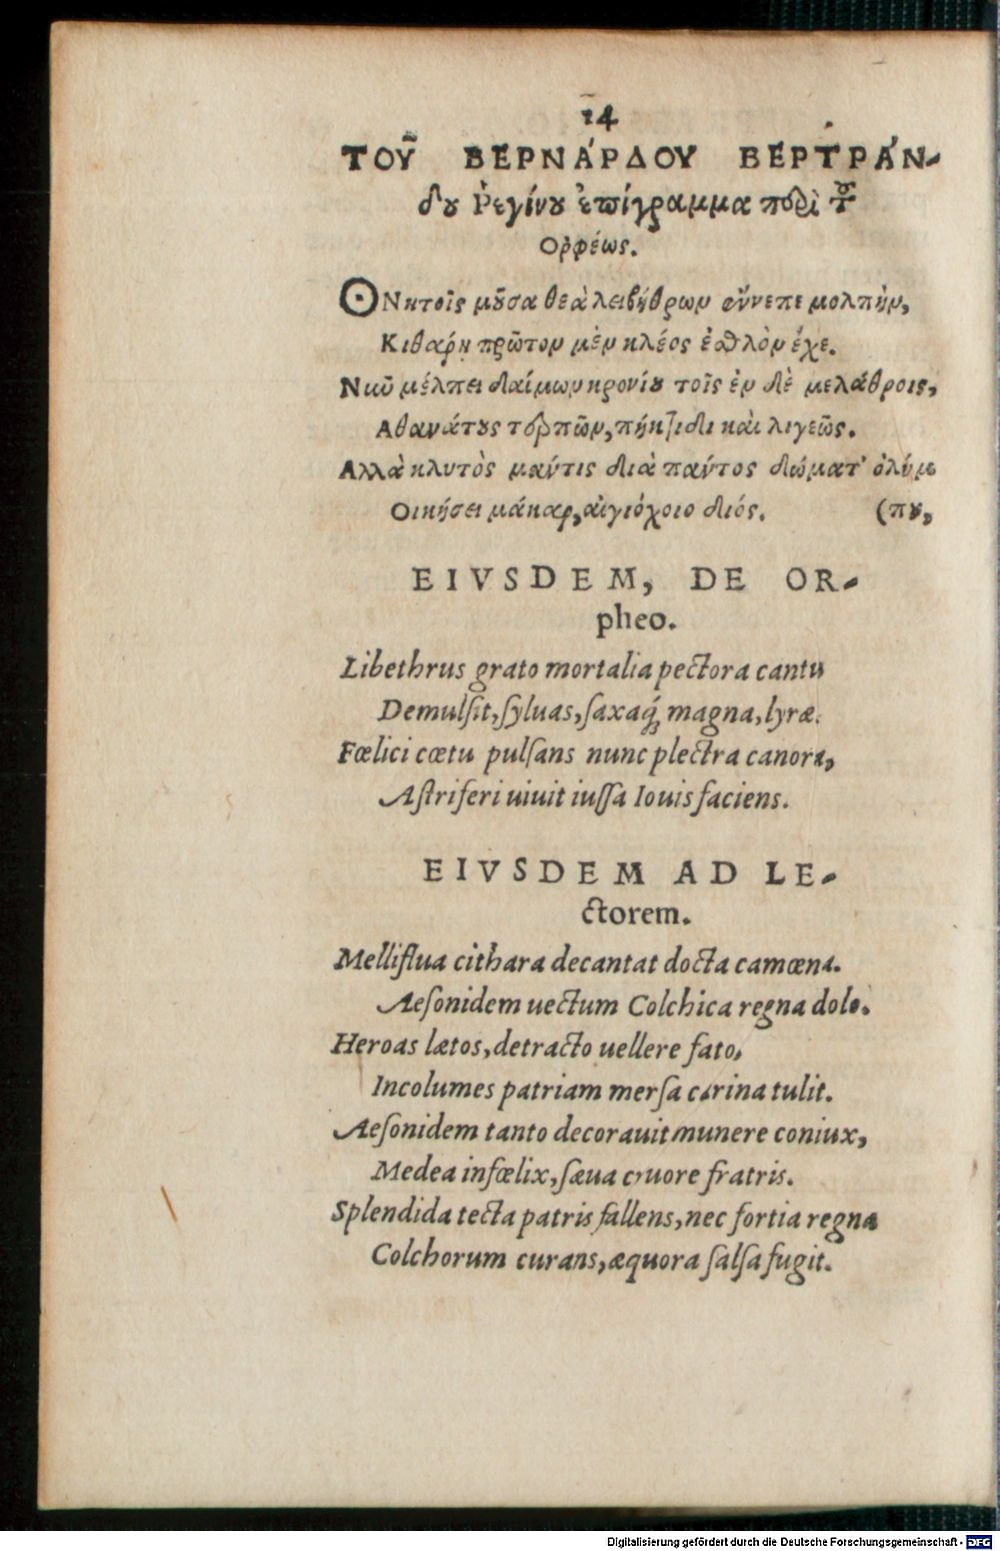 14
ΤΟΥ͂ ΒΕΡΝΆΡΔΟΥ ΒΕΡΤΡΆΝ-
δου Ῥεγίνου ἐπίγραμμα περὶ τοῦ
Ορφέως.
ΘΝητοῖς μοῦσα θεὰ λειβήθρων ἔννεπε μολπὴν,
Κιθαρη πρῶτον μὲν κλέος ἐσθλὸν ἔχε.
Νιῶ μέλπει δαίμων κρονίου τοῖς ἐν δὲ μελάθροις,
Αθανάτους τερπῶν, πήκτιδι καὶ λιγεῶς.
Αλλὰ κλυτὸς μαύτις διὰ παύτος δώματ' ὀλύμ-
Οικήσει μάκαρ, αἰγιόχοιο διός. (που,
EIVSDEM, DE OR-
pheo.
Libethrus grato mortalia pectora cantu
Demulsit, syluas, saxaq́; magna, lyræ.
Fœlici cœtu pulsans nunc plectra canora,
Astriferi uiuit iussa Iouis faciens.
EIVSDEM AD LE-
ctorem.
Melliflua cithara decantat docta camœna.
Aesonidem uectum Colchica regna dolo.
Heroas lætos, detracto uellere fato,
Incolumes patriam mersa carina tulit.
Aesonidem tanto decorauit munere coniux,
Medea infœlix, sæua cruore fratris.
Splendida tecta patris fallens, nec fortia regna
Colchorum curans, æquora salsa fugit.
Digitalisierung gefördert durch die Deutsche Forschungsgemeinschaft - DFG